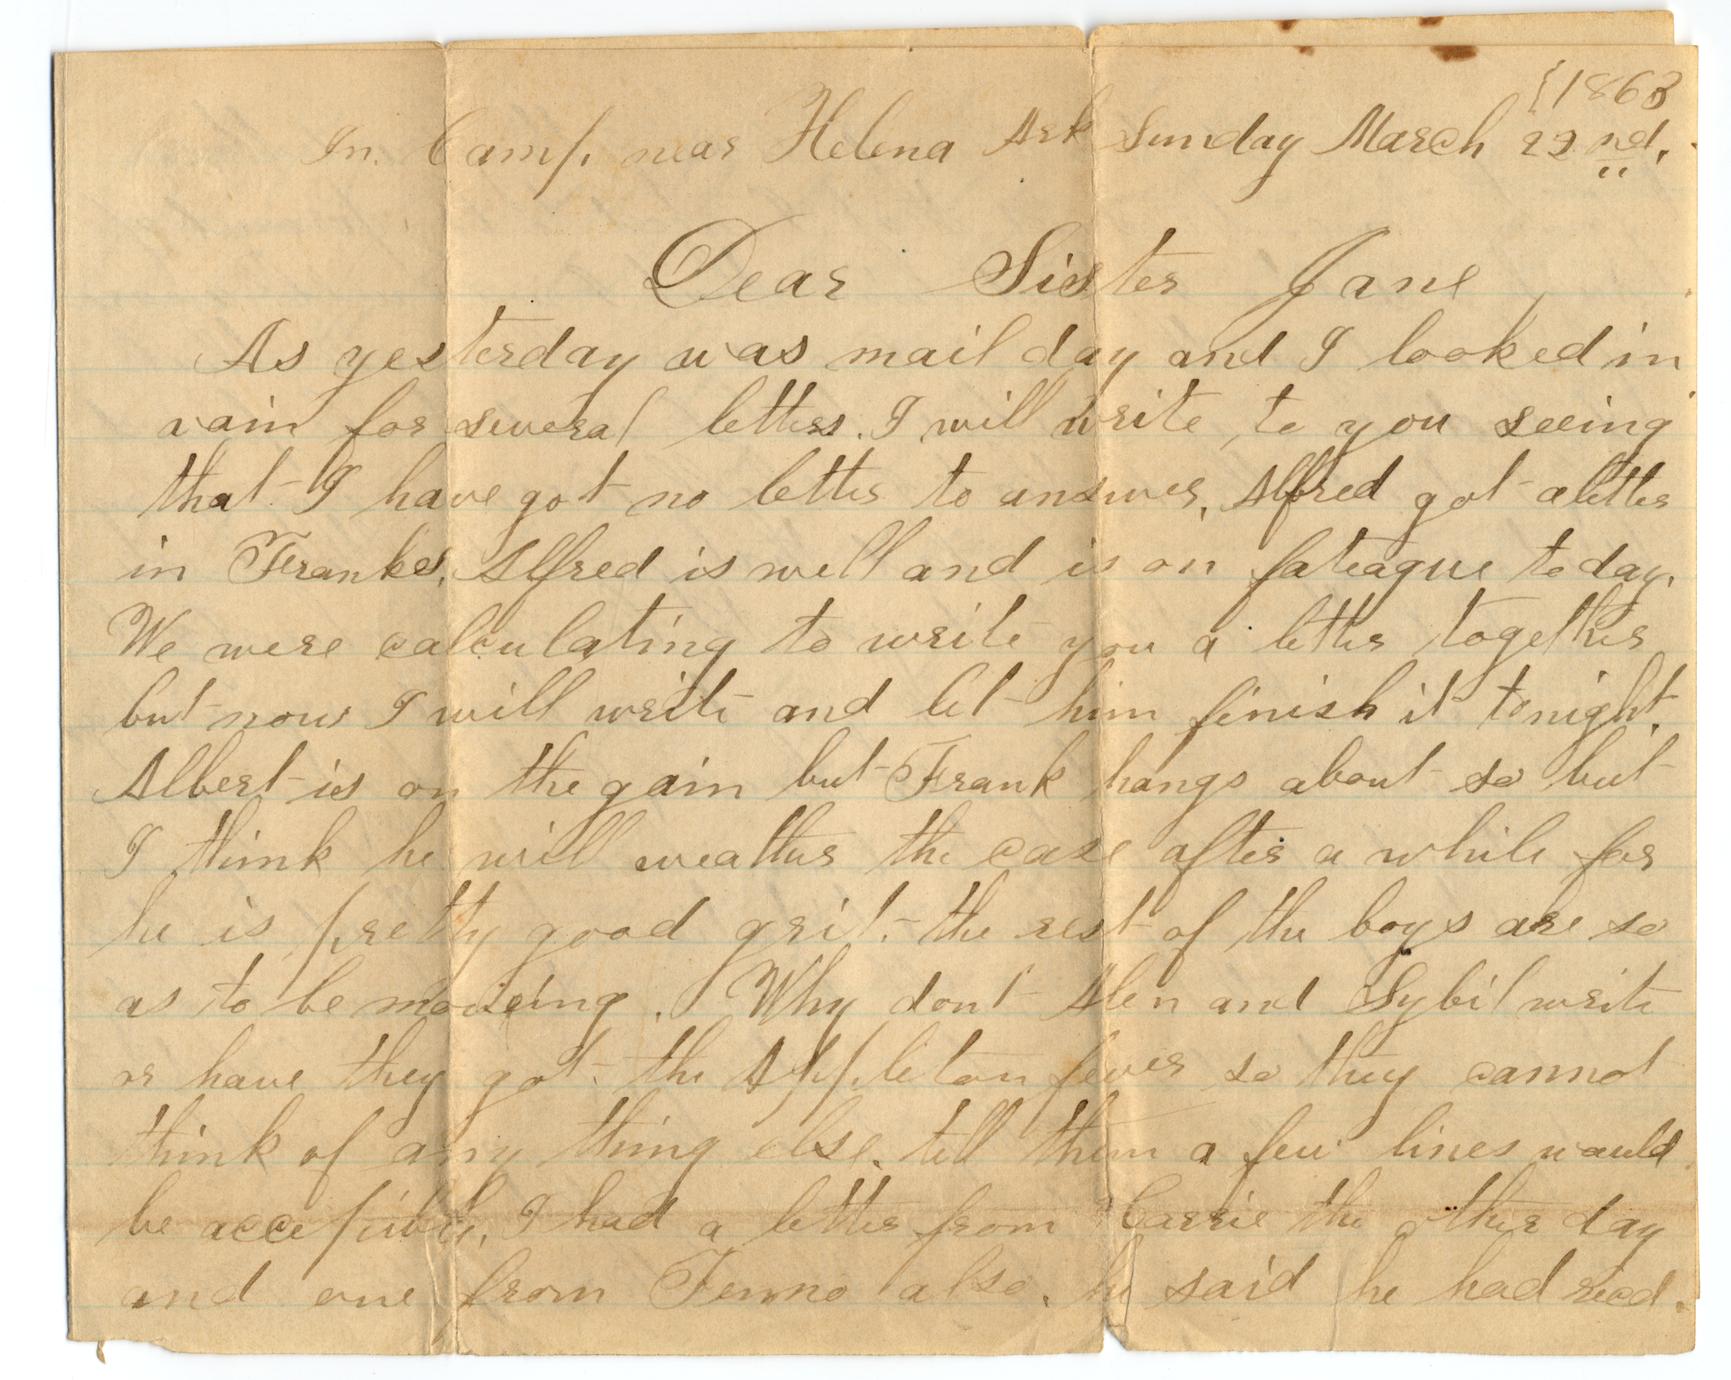 {1863
In Camp, near Helena Ark Sunday March 22nd.
Dear Sister Jane,
As yesterday was mail day and I looked in
vain for several letters. I will write to you seeing
that I have got no letter to answer, Alfred got a letter
in Frankes, Alfred is well and is on fateague today.
We were calculating to write you a letter together
but now I will write and let him finish it tonight.
Albert is on the gain but Frank hangs about so but
I think he will weather the case after a while for
he is pretty good grit. the rest of the boys are so
as to be moveing. Why dont Alen and Sybil write
or have they got the Appleton fever so they cannot
think of any thing else. tell them a few lines would
be . I had a letter from Carrie the other day
and one from Fenno also. he said he had recd.